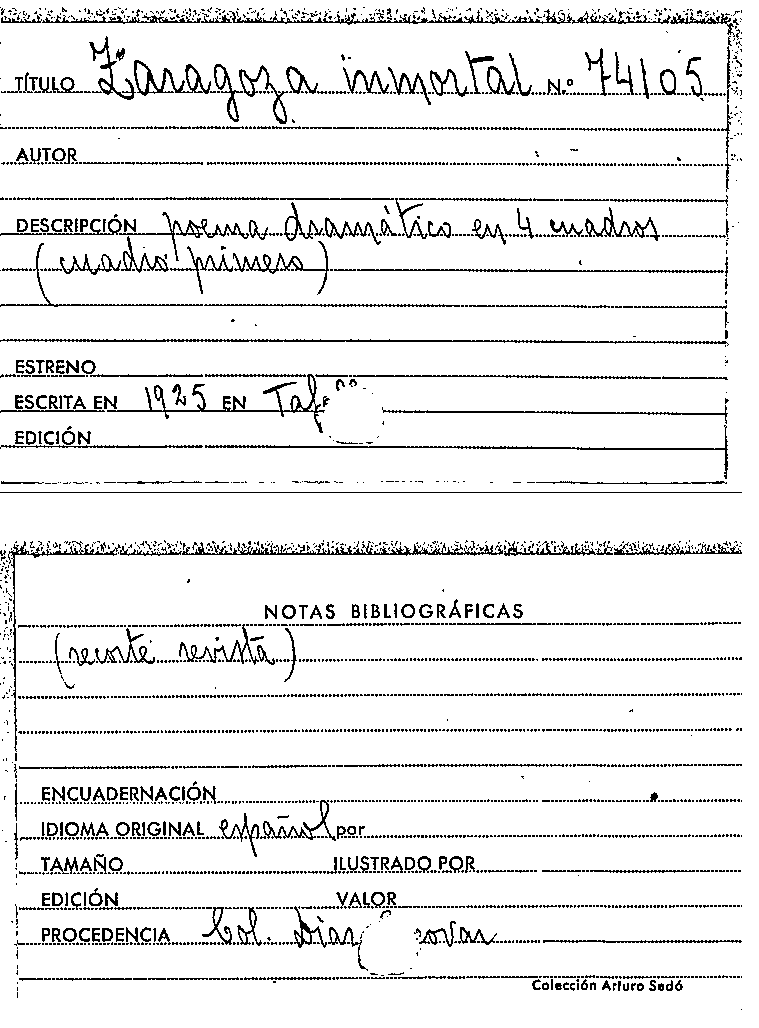 TÍTULO Zaragoza inmortal N.º 74105
AUTOR
DESCRIPCIÓN poema dramático en 4 cuadros
(cuadro primero)
ESTRENO
ESCRITA EN 1925 EN
EDICIÓN
NOTAS BIBLIOGRÁFICAS
(recorte revista)
ENCUADERNACIÓN
IDIOMA ORIGINAL español por
TAMAÑO ILUSTRADO POR
EDICIÓN VALOR
PROCEDENCIA Col. Díaz
Colección Arturo Sedó